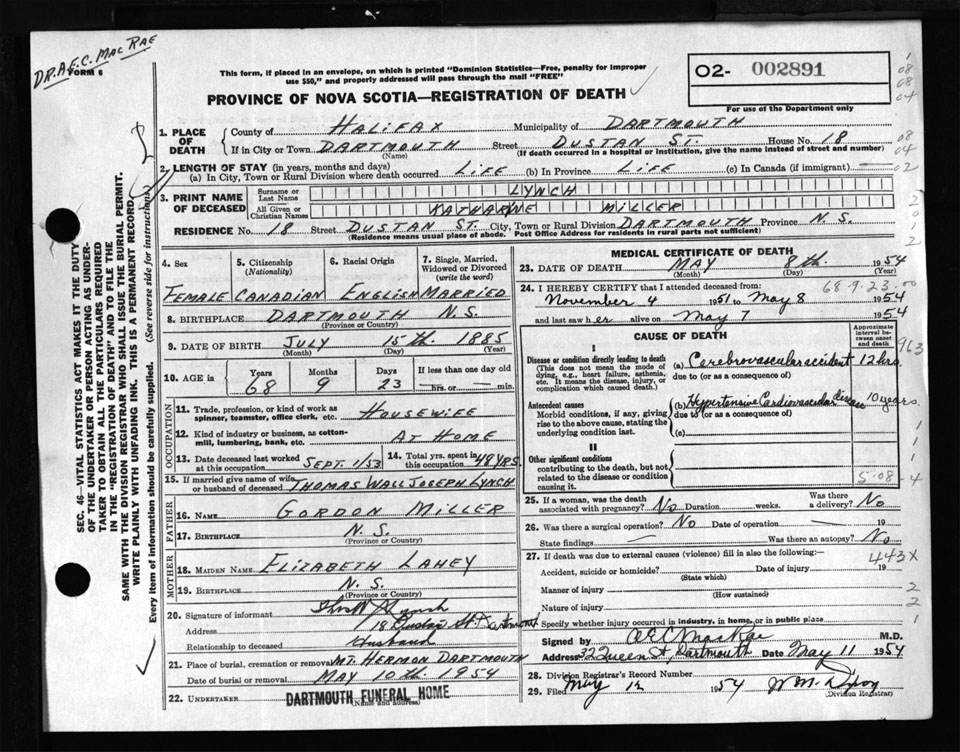 DR. A.E.C. MAC RAE
FORM 6
This form, if placed in an envelope, on which is printed "Dominion Statistics—Free, penalty for improper
use $50," and properly addressed will pass through the mail "FREE"
PROVINCE OF NOVA SCOTIA—REGISTRATION OF DEATH
O2- 002891
For use of the Department only
1
08
08
04
08
04
02
2
0
1
2
1. PLACE OF DEATH
County of HALIFAX Municipality of DARTMOUTH
If in City or Town DARTMOUTH Street DUSTAN ST. House No. 18
(Name) (If death occurred in a hospital or institution, give the name instead of street and number)
2. LENGTH OF STAY (in years, months and days)
(a) In City, Town or Rural Division where death occurred LIFE (b) In Province LIFE (c) In Canada (if immigrant) —
3. PRINT NAME OF DECEASED
Surname or Last Name LYNCH
All Given or Christian Names KATHARINE MILLER
RESIDENCE No. 18 Street DUSTAN ST. City, Town or Rural Division DARTMOUTH Province N.S.
(Residence means usual place of abode. Post Office Address for residents in rural parts not sufficient)
4. Sex
FEMALE
5. Citizenship (Nationality)
CANADIAN
6. Racial Origin
ENGLISH
7. Single, Married, Widowed or Divorced (write the word)
MARRIED
8. BIRTHPLACE DARTMOUTH N.S.
(Province or Country)
9. DATE OF BIRTH JULY 15th. 1885
(Month) (Day) (Year)
10. AGE in Years Months Days If less than one day
68 9 23 — hrs. or — min.
OCCUPATION
11. Trade, profession, or kind of work as spinner, teamster, office clerk, etc. HOUSEWIFE
12. Kind of industry or business, as cotton-mill, lumbering, bank, etc. AT HOME
13. Date deceased last worked at this occupation SEPT. 1/53
14. Total yrs. spent in this occupation 48 YRS.
15. If married give name of wife or husband of deceased THOMAS WALL JOSEPH LYNCH
FATHER
16. NAME GORDON MILLER
17. BIRTHPLACE N.S.
(Province or Country)
MOTHER
18. MAIDEN NAME ELIZABETH LAHEY
19. BIRTHPLACE N.S.
(Province or Country)
20. Signature of informant Lynch
Address 18 Dustan St Dartmouth
Relationship to deceased Husband
21. Place of burial, cremation or removal MT. HERMON DARTMOUTH
Date of burial or removal MAY 10th 1954
22. UNDERTAKER DARTMOUTH FUNERAL HOME
(Name and address)
MEDICAL CERTIFICATE OF DEATH
23. DATE OF DEATH MAY 8th. 1954
(Month) (Day) (Year)
68-9-23-00
24. I HEREBY CERTIFY that I attended deceased from:
November 4 1951 to May 8 1954
and last saw her alive on May 7 1954
CAUSE OF DEATH
Approximate interval between onset and death
963
I
Disease or condition directly leading to death
(This does not mean the mode of dying, e.g., heart failure, asthenia, etc. It means the disease, injury, or complication which caused death.)
(a) Cerebrovascular accident 12 hrs.
due to (or as a consequence of)
Antecedent causes
Morbid conditions, if any, giving rise to the above cause, stating the underlying condition last.
(b) Hypertensive Cardiovascular disease 10 years.
due to (or as a consequence of)
(c)
II
Other significant conditions
contributing to the death, but not related to the disease or condition causing it
1
1
5-08 4
25. If a woman, was the death associated with pregnancy? No Duration weeks. Was there a delivery? No
26. Was there a surgical operation? No Date of operation — 19
State findings — Was there an autopsy? No
27. If death was due to external causes (violence) fill in also the following:—
443X
Accident, suicide or homicide? Date of injury 19
(State which)
Manner of injury 2
(How sustained)
Nature of injury 2
Specify whether injury occurred in industry, in home, or in public place 1
Signed by A E C MacRae M.D.
Address 32 Queen St, Dartmouth Date May 11 1954
28. Division Registrar's Record Number
29. Filed May 12 1954 W M
(Division Registrar)
SEC. 46—VITAL STATISTICS ACT MAKES IT THE DUTY
OF THE UNDERTAKER OR PERSON ACTING AS UNDER-
TAKER TO OBTAIN ALL THE PARTICULARS REQUIRED
IN THE "REGISTRATION OF DEATH" AND TO FILE THE
SAME WITH THE DIVISION REGISTRAR WHO SHALL ISSUE THE BURIAL PERMIT.
WRITE PLAINLY WITH UNFADING INK. THIS IS A PERMANENT RECORD.
Every item of information should be carefully supplied. (See reverse side for instructions)